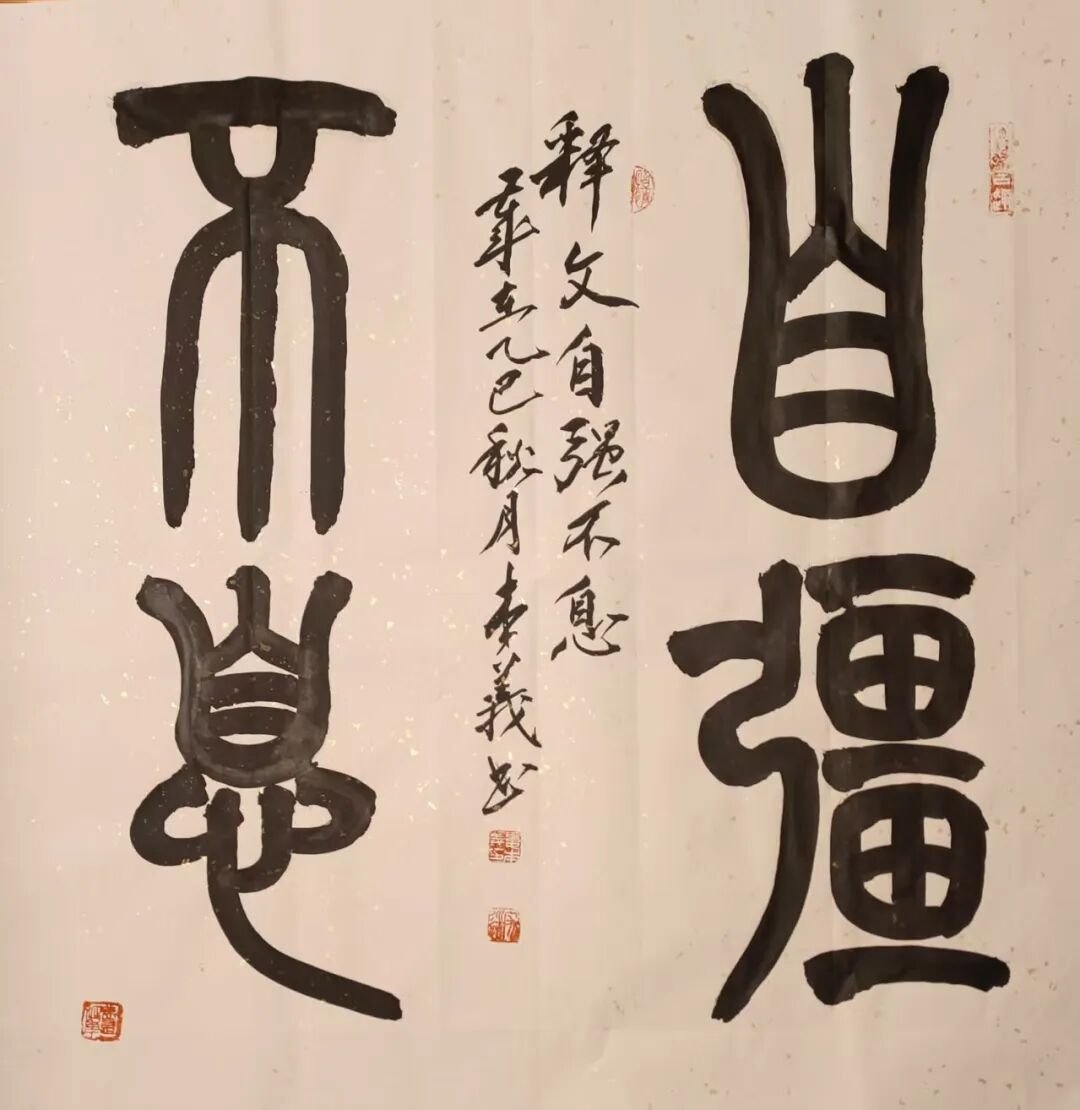 自彊
释文自强不息
歲在乙巳秋月義书
不息